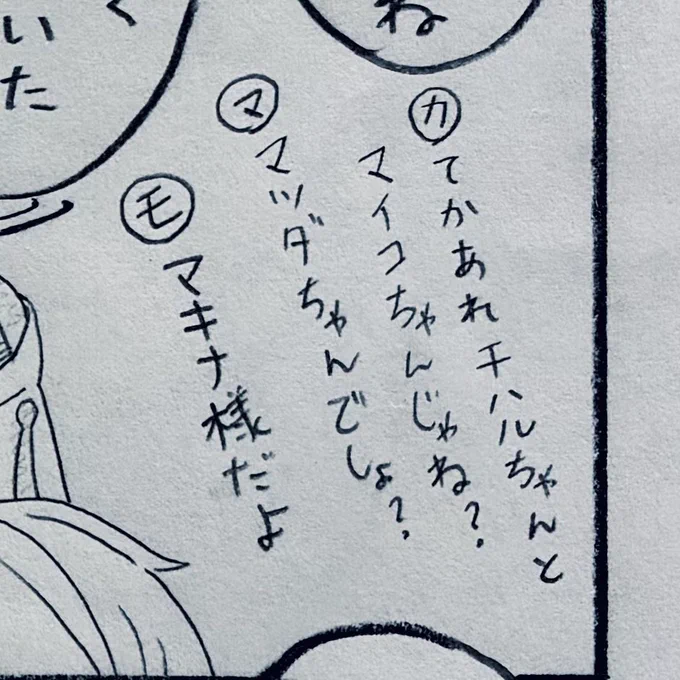 ね
㋕
てかあれチハルちゃんと
マイコちゃんじゃね？
㋮
マツダちゃんでしょ？
㋲
マキナ様だよ
く
いた